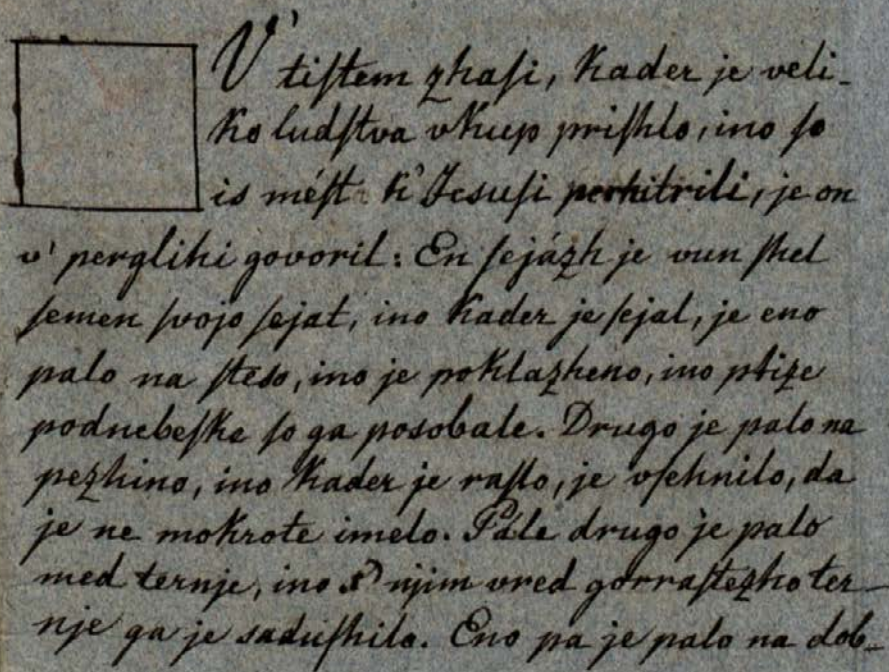 V' tiſtem zhaſi, kader je veli-
ko ludſtva vkup priſhlo, ino ſo
is méſt k' Jesuſi perhitrili, je on
v' pergliki govoril: En ſejázh je vun ſhel
ſemen ſvojo ſejat, ino kader je ſejal, je eno
palo na ſteso, ino je poklazheno, ino ptize
podnebeſke ſo ga posobale. Drugo je palo na
pezhino, ino kader je raſlo, je vſehnilo, da
je ne mokrote imelo. Pále drugo je palo
med ternje, ino s' njim vred gorraſtezho ter-
nje ga je saduſhilo. Eno pa je palo na dob-